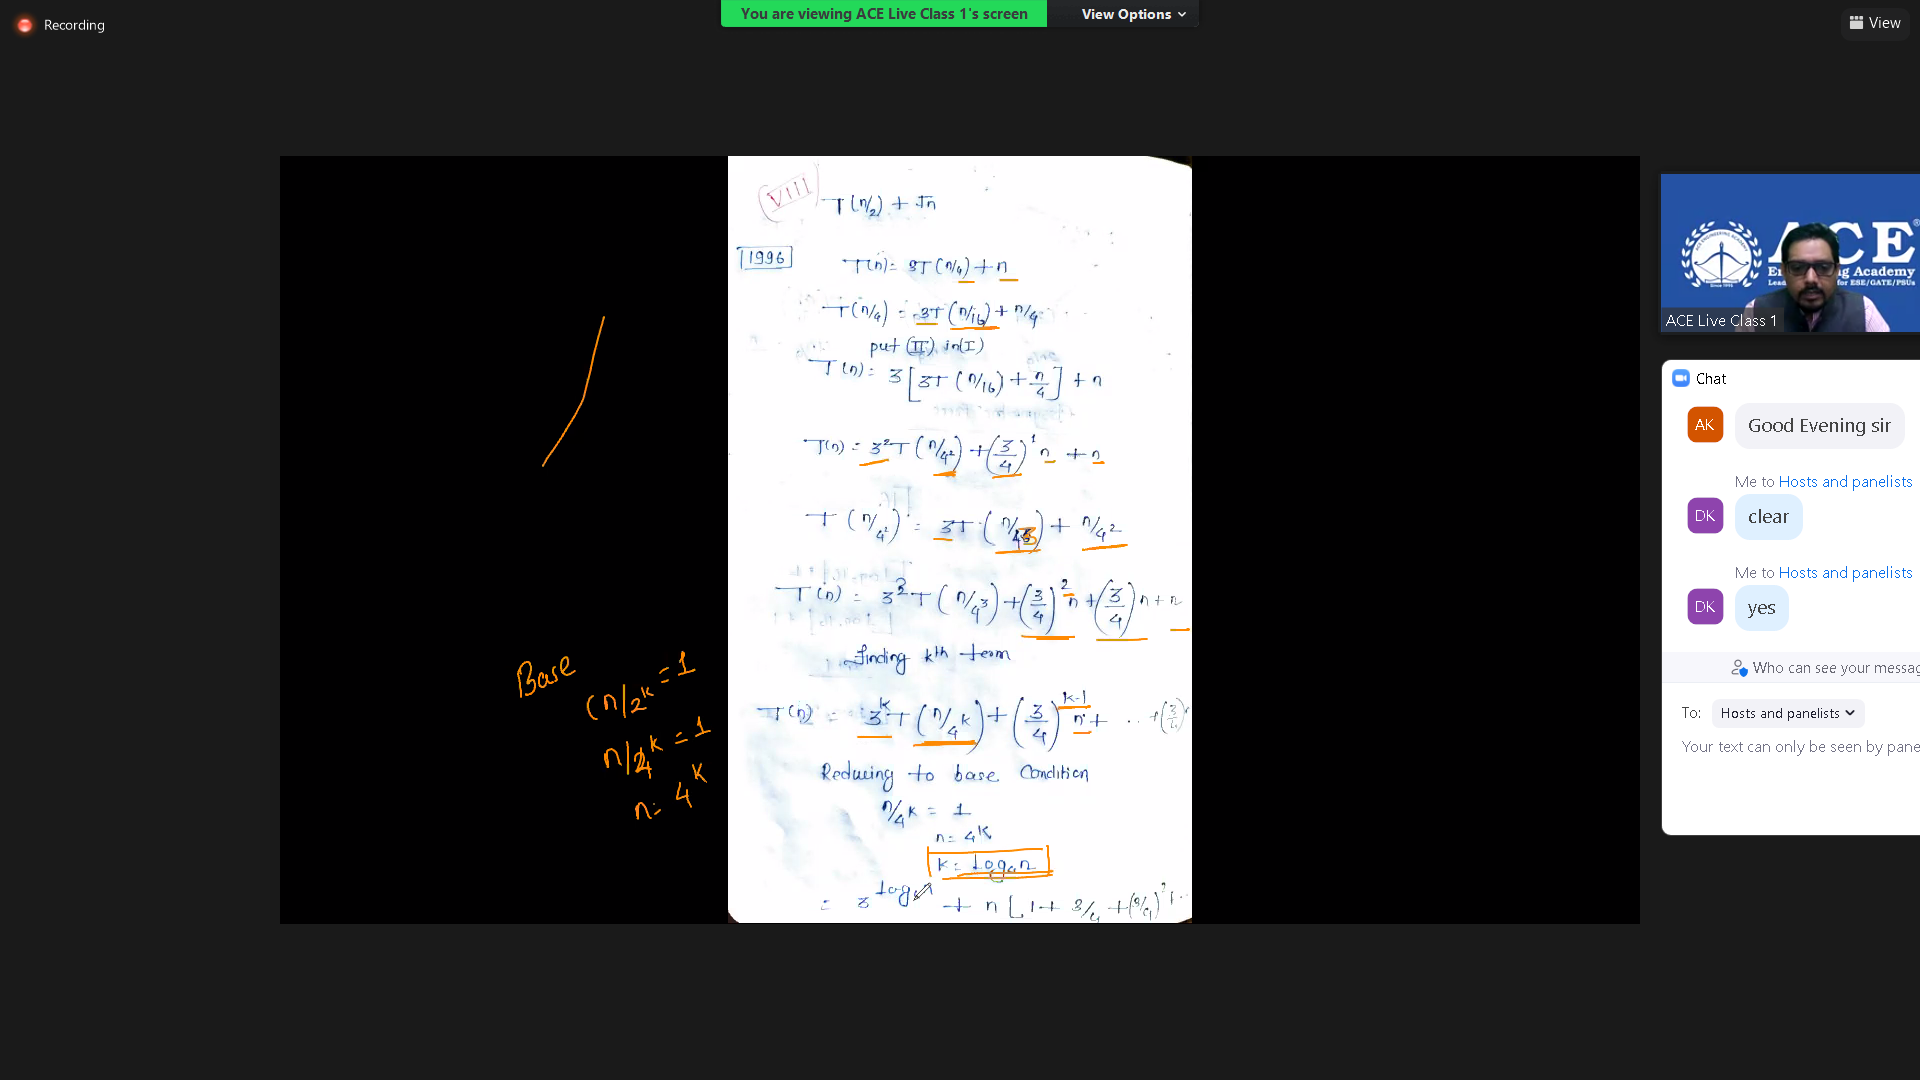 Recording
You are viewing ACE Live Class 1's screen
View Options
View
(VIII)
T(n/2) + √n
1996
T(n) = 3T(n/4) + n
T(n/4) = 3T(n/16) + n/4
put (II) in (I)
T(n) = 3[3T(n/16) + n/4] + n
T(n) = 3²T(n/4²) + (3/4)¹n + n
T(n/4²) = 3T(n/43) + n/4²
T(n) = 3³T(n/4³) + (3/4)²n + (3/4)n + n
finding kth term
T(n) = 3^k T(n/4^k) + (3/4)^k-1 n + .. + (3/4)
Reducing to base Condition
n/4^k = 1
n = 4^k
k = log₄n
= 3^log n + n[1 + 3/4 + (3/4)² + ..
Base
(n/2^k = 1
n/4^k = 1
n = 4^k
ACE
Engineering Academy
for ESE/GATE/PSUs
ACE Live Class 1
Chat
AK
Good Evening sir
Me to Hosts and panelists
DK
clear
Me to Hosts and panelists
DK
yes
Who can see your messag
To: Hosts and panelists
Your text can only be seen by pane